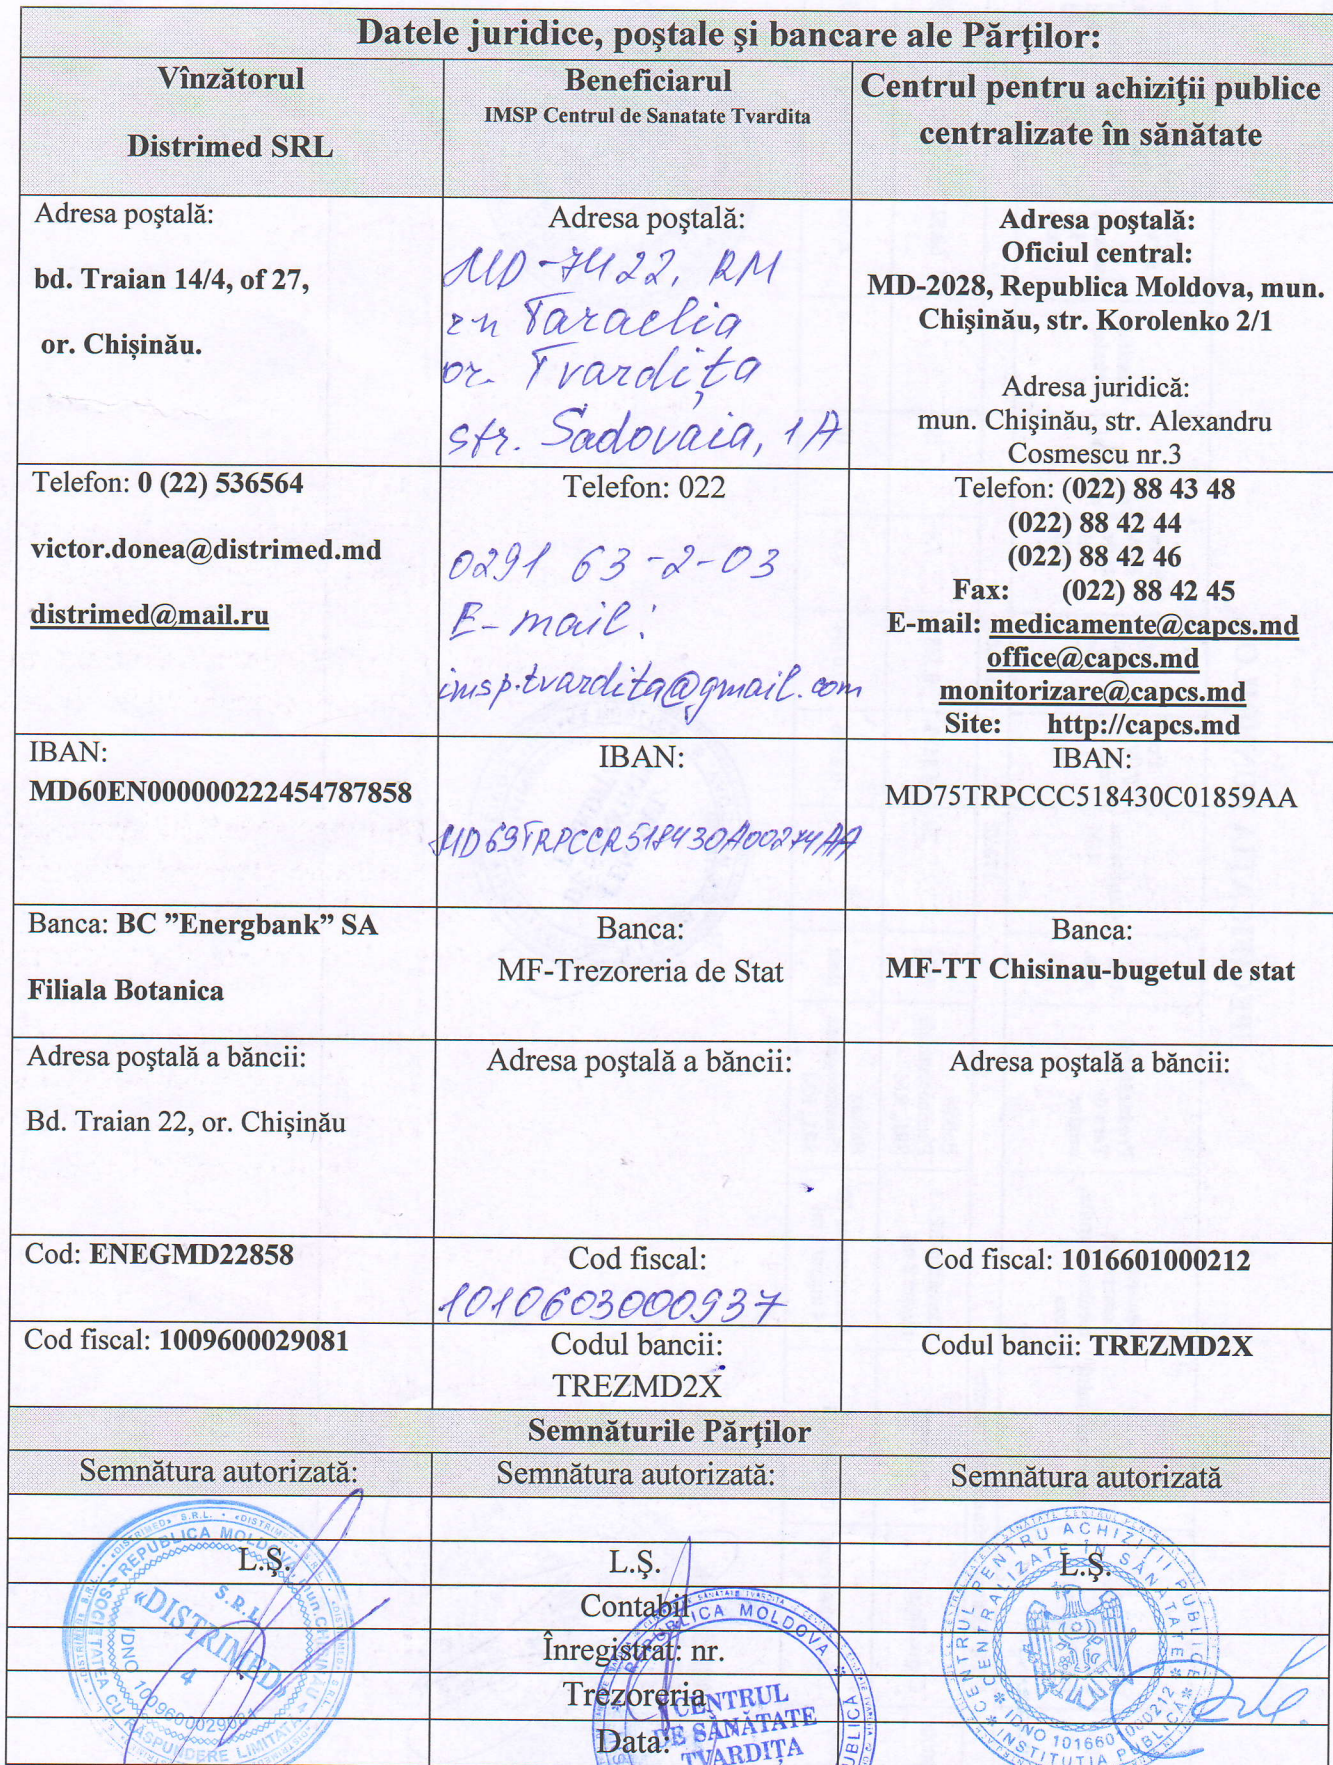 Datele juridice, poştale şi bancare ale Părţilor:
Vînzătorul
Distrimed SRL
Beneficiarul
IMSP Centrul de Sanatate Tvardita
Centrul pentru achiziţii publice
centralizate în sănătate
Adresa poştală:
bd. Traian 14/4, of 27,
or. Chișinău.
Adresa poştală:
MD-7422, RM
rn Taraclia
or. Tvardița
str. Sadovaia, 1A
Adresa poştală:
Oficiul central:
MD-2028, Republica Moldova, mun.
Chişinău, str. Korolenko 2/1
Adresa juridică:
mun. Chişinău, str. Alexandru
Cosmescu nr.3
Telefon: 0 (22) 536564
victor.donea@distrimed.md
distrimed@mail.ru
Telefon: 022
0291 63-2-03
E-mail:
imsp.tvardita@gmail.com
Telefon: (022) 88 43 48
(022) 88 42 44
(022) 88 42 46
Fax: (022) 88 42 45
E-mail: medicamente@capcs.md
office@capcs.md
monitorizare@capcs.md
Site: http://capcs.md
IBAN:
MD60EN000000222454787858
IBAN:
MD69TRPCCR518430A00274AA
IBAN:
MD75TRPCCC518430C01859AA
Banca: BC ”Energbank” SA
Filiala Botanica
Banca:
MF-Trezoreria de Stat
Banca:
MF-TT Chisinau-bugetul de stat
Adresa poştală a băncii:
Bd. Traian 22, or. Chișinău
Adresa poştală a băncii:
Adresa poştală a băncii:
Cod: ENEGMD22858
Cod fiscal:
1010603000937
Cod fiscal: 1016601000212
Cod fiscal: 1009600029081
Codul bancii:
TREZMD2X
Codul bancii: TREZMD2X
Semnăturile Părţilor
Semnătura autorizată:
Semnătura autorizată:
Semnătura autorizată
L.Ş.
L.Ş.
L.Ş.
Contabil
Înregistrat: nr.
Trezoreria
Data:
REPUBLICA MOLDOVA
SOCIETATEA CU RĂSPUNDERE LIMITATĂ
S.R.L.
«DISTRIMED»
4
IDNO 1009600029081
REPUBLICA MOLDOVA
CENTRUL
DE SĂNĂTATE
TVARDIȚA
CENTRUL PENTRU ACHIZIȚII PUBLICE
CENTRALIZATE ÎN SĂNĂTATE
IDNO 1016601000212
INSTITUȚIA PUBLICĂ